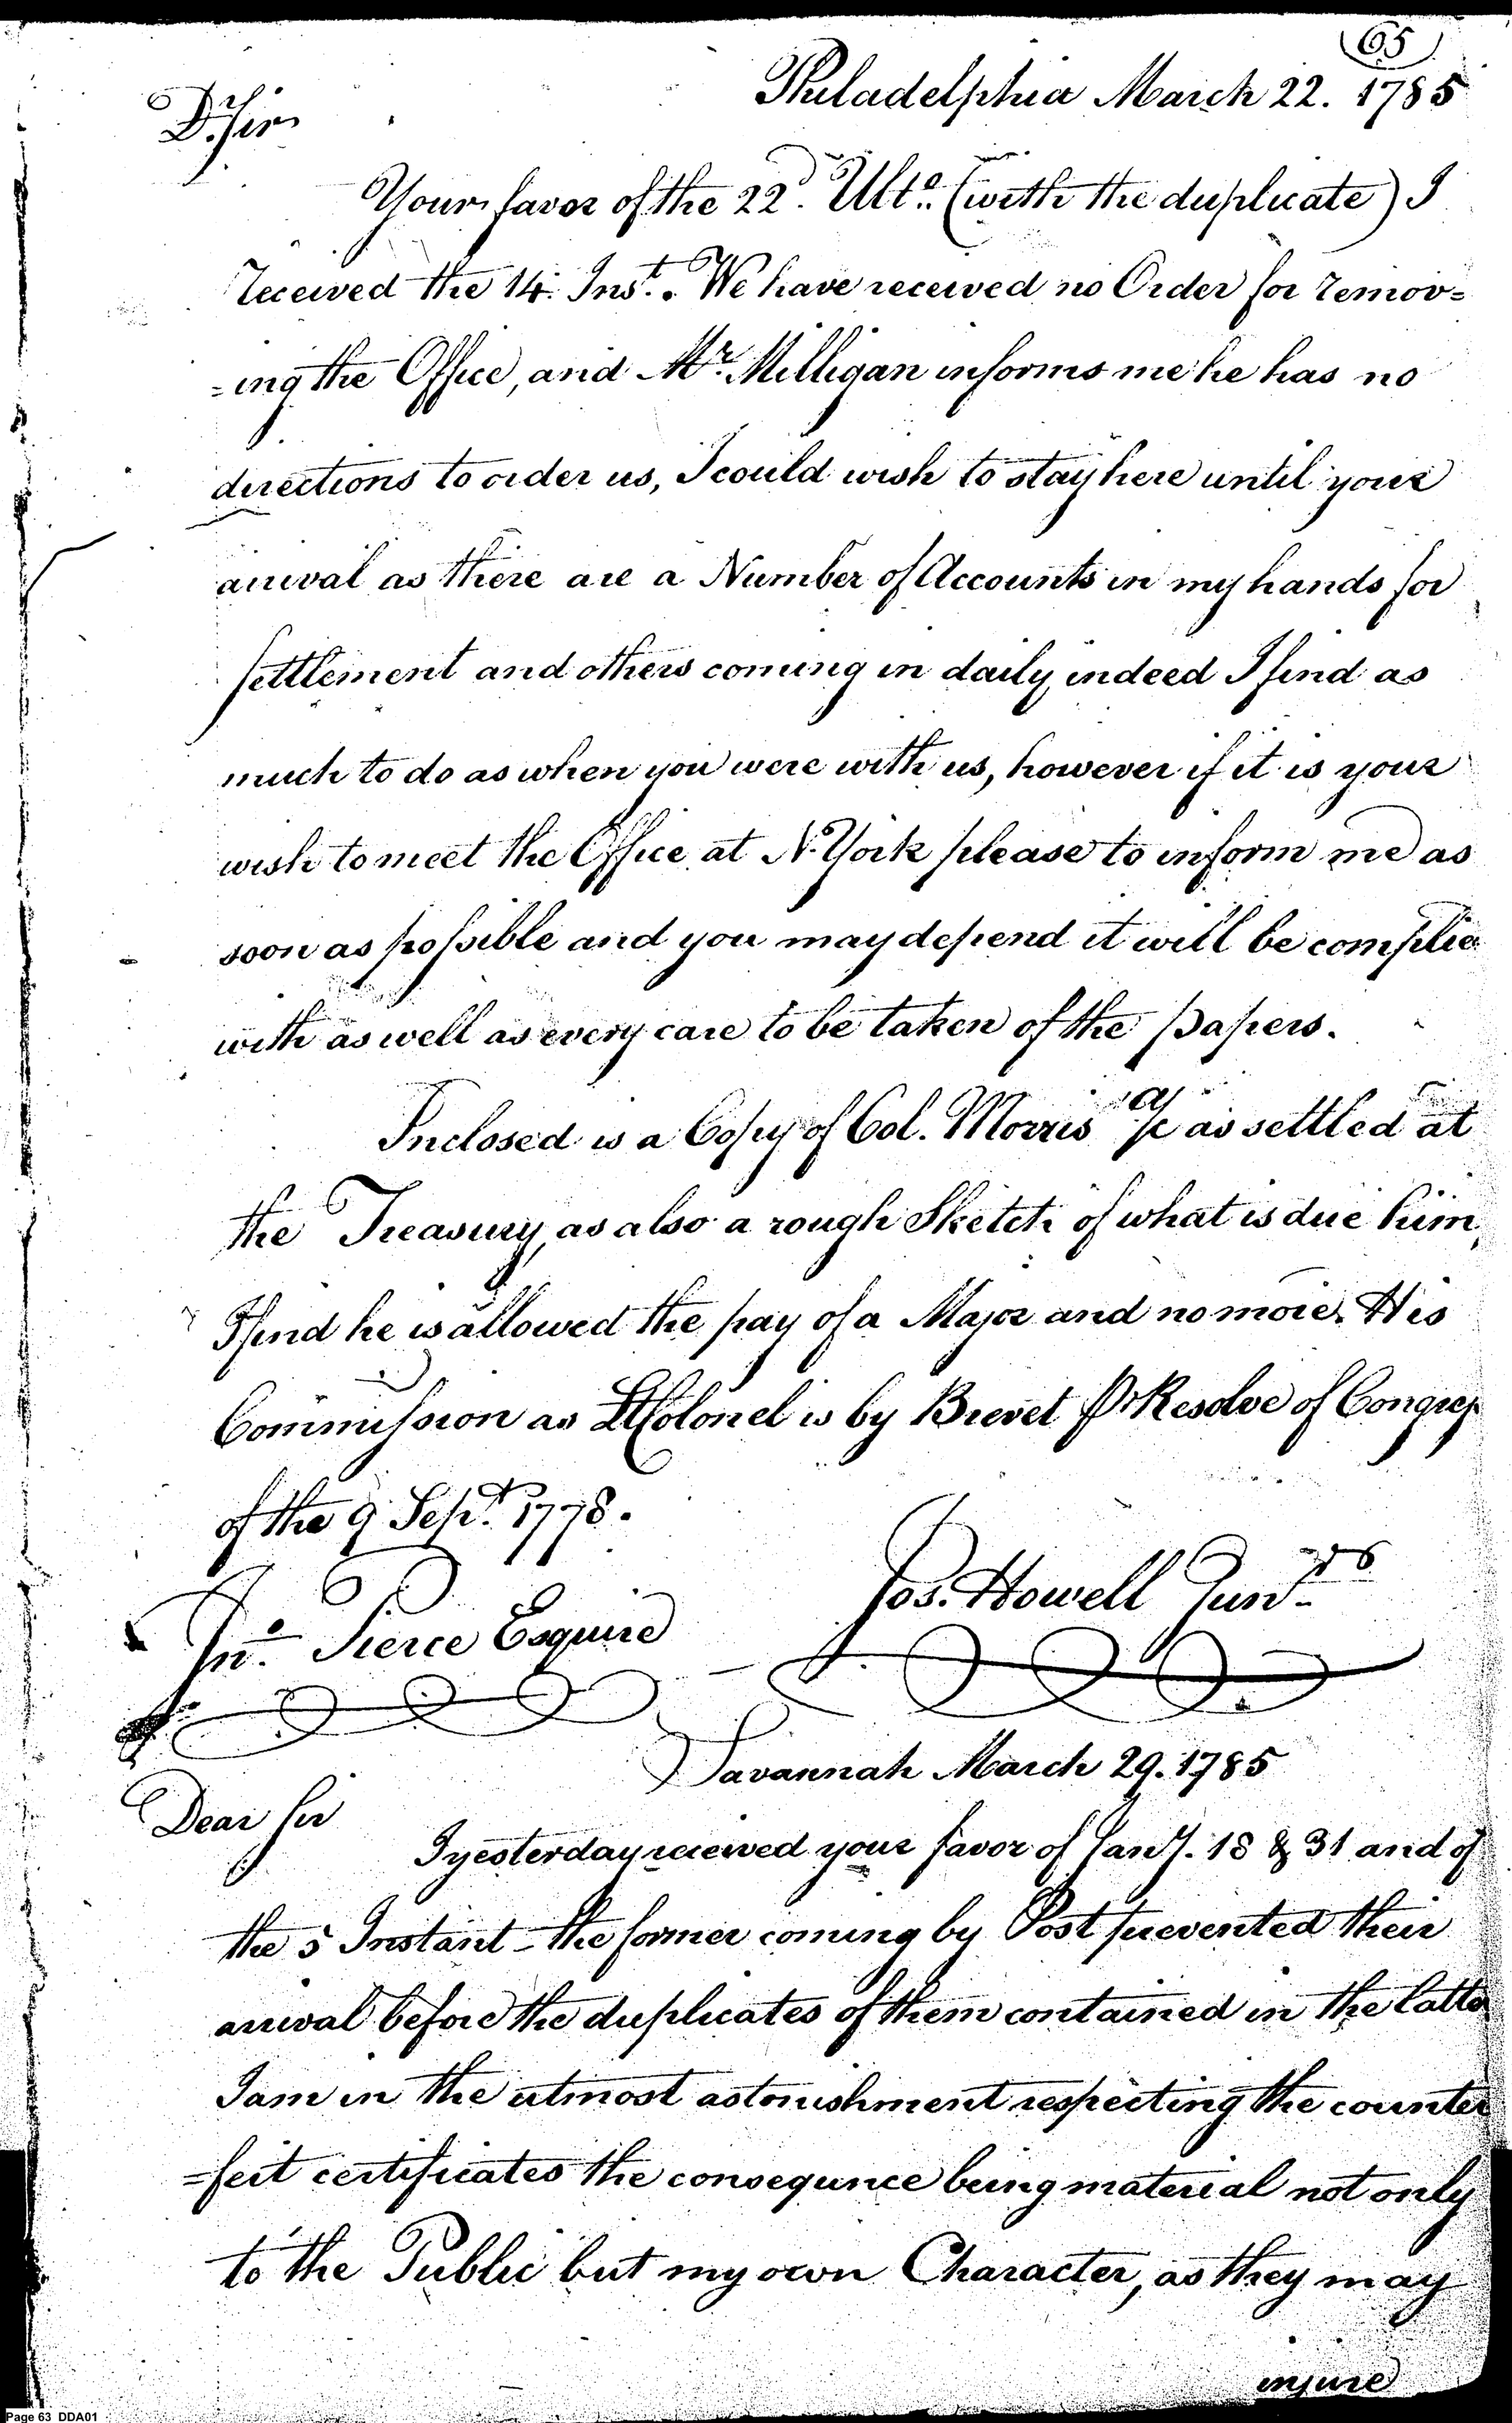 65
Philadelphia March 22. 1785
D. Sir
Your favor of the 22d. Ulto. (with the duplicate) I
received the 14. Inst. We have received no Order for remov=
=ing the Office, and Mr. Milligan informs me he has no
directions to order us, I could wish to stay here until your
arrival as there are a Number of Accounts in my hands for
settlement and others coming in daily, indeed I find as
much to do as when you were with us, however if it is your
wish to meet the Office at N. York please to inform me as
soon as possible and you may depend it will be complie
with as well as every care to be taken of the papers.
Inclosed is a Copy of Col. Morris a/c as settled at
the Treasury, as also a rough Sketch of what is due him,
I find he is allowed the pay of a Major and no more. His
Commission as Lt Colonel is by Brevet Pr Resolve of Congress
of the 9 Sept. 1778.
Jos. Howell Junr.
Jno. Pierce Esquire
Savannah March 29. 1785
Dear Sir
I yesterday received your favor of Jany. 18 & 31 and of
the 5 Instant - the former coming by Post prevented their
arrival before the duplicates of them contained in the latter
I am in the utmost astonishment respecting the counter
=feit certificates the consequnce being material not only
to the Public but my own Character, as they may
injure
Page 63 DDA01